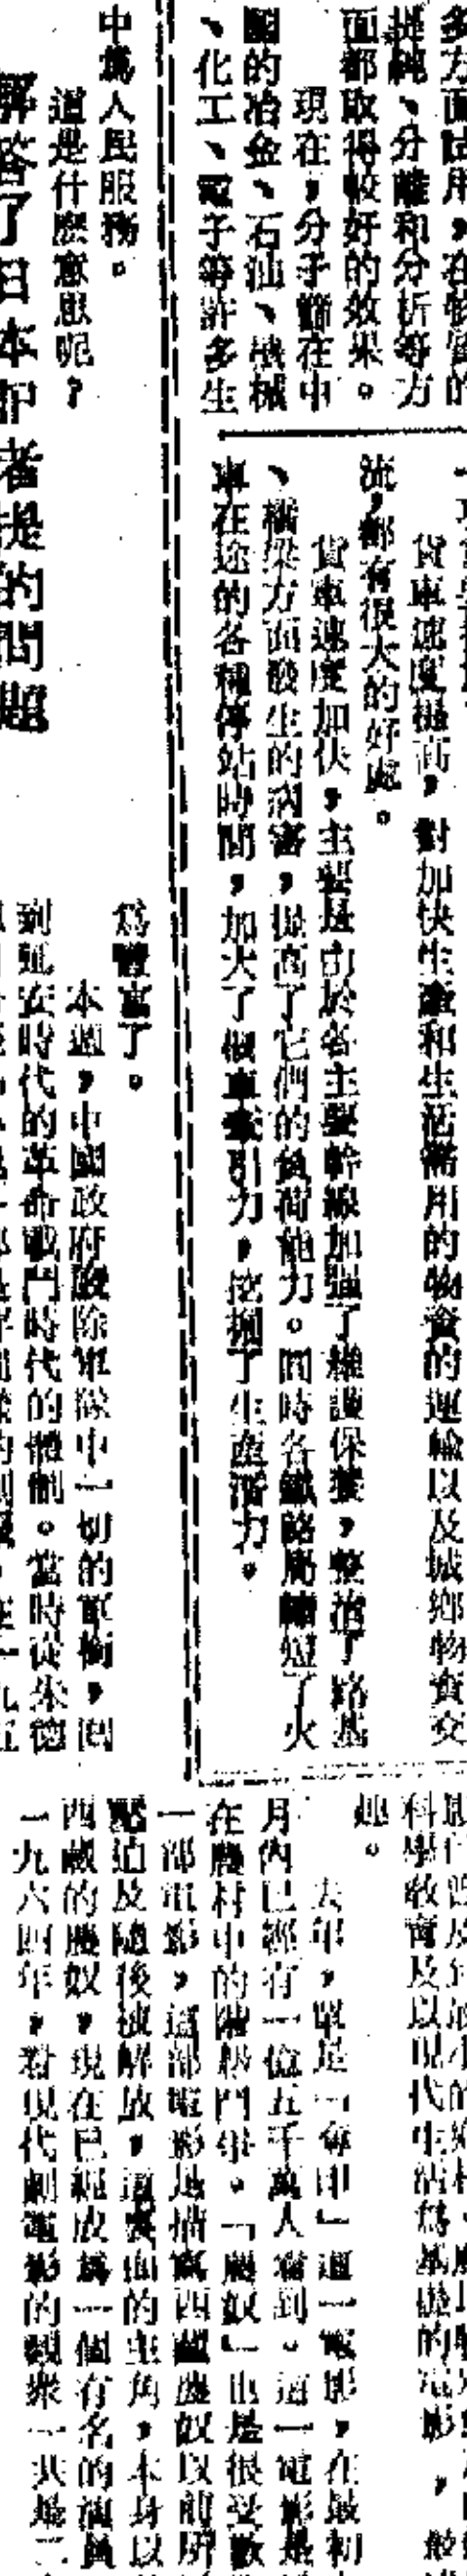 多方面試用，在物質的
提純、分離和分析等方
面都取得較好的效果。
現在，分子篩在中
國的冶金、石油、機械
、化工、電子等許多生
中爲人民服務。
這是什麽意思呢？
解答了日本記者提的問題
貨車速度提高，對加快生產和生活需用的物資的運輸以及城鄉物資交
流，都有很大的好處。
貨車速度加快，主要是由於各主要幹線加强了維護保養，整治了路基
、橋梁方面發生的病害，提高了它們的負荷能力。同時各鐵路局縮短了火
車在途的各種停站時間，加大了機車牽引力，挖掘了生產潛力。
爲豐富了。
本週，中國政府廢除軍隊中一切的軍銜，囘
到延安時代的革命戰鬥時代的體制。當時從朱德
科學教育及以現代生活爲基礎的電影，
趣。
去年，單是「奪印」這一電影，在最初
月內已經有一億五千萬人看到。這一電影是
在農村中的階級鬥爭。「農奴」也是很受歡
一部電影，這部電影是描寫西藏農奴以前所
壓迫及隨後被解放，這戲曲的主角，本身以
西藏的農奴，現在已經成爲一個有名的演員
一九六四年，看現代劇電影的觀衆一共是二